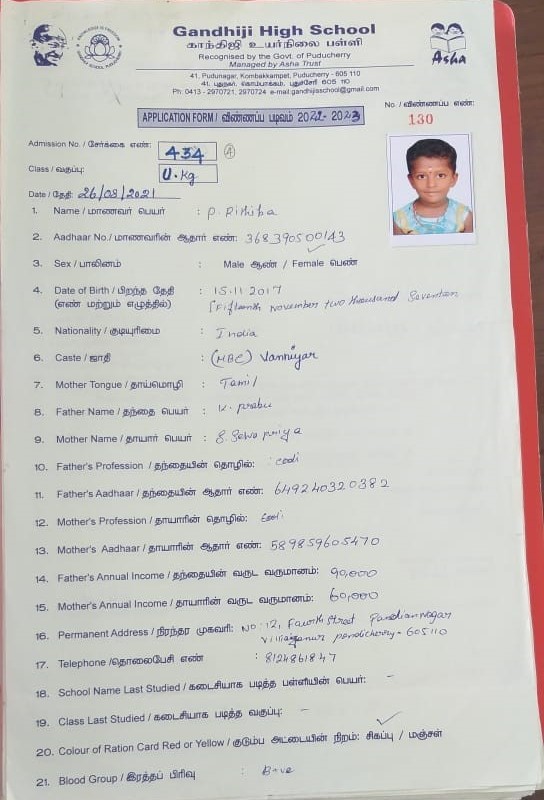 Gandhiji High School
காந்திஜி உயர்நிலை பள்ளி
Recognised by the Govt. of Puducherry
Managed by Asha Trust
41, Pudunagar, Kombakkampet, Puducherry - 605 110
41, புதுநகர், கொம்பாக்கம், புதுச்சேரி 605 110
Ph: 0413 - 2970721, 2970724 e-mail:gandhijisschool@gmail.com
Asha
APPLICATION FORM / விண்ணப்ப படிவம் 2022- 2023
No. / விண்ணப்ப எண்:
130
Admission No. / சேர்க்கை எண்: 434 A
Class / வகுப்பு: U.kg
Date / தேதி: 26/08/2021
1. Name / மாணவர் பெயர் : P. Pithiba
2. Aadhaar No./ மாணவரின் ஆதார் எண்: 368390500143
3. Sex / பாலினம் : Male ஆண் / Female பெண்
4. Date of Birth / பிறந்த தேதி : 15.11.2017
(எண் மற்றும் எழுத்தில்) Fifteenth November two thousand Seventeen
5. Nationality / குடியுரிமை : India
6. Caste / ஜாதி : (MBC) Vanniyar
7. Mother Tongue / தாய்மொழி : Tamil
8. Father Name / தந்தை பெயர் : K. prabu
9. Mother Name / தாயார் பெயர் : S. Selva priya
10. Father's Profession / தந்தையின் தொழில்: cooli
11. Father's Aadhaar / தந்தையின் ஆதார் எண்: 649240320382
12. Mother's Profession / தாயாரின் தொழில்: Cooli
13. Mother's Aadhaar / தாயாரின் ஆதார் எண்: 589859605470
14. Father's Annual Income / தந்தையின் வருட வருமானம்: 90,000
15. Mother's Annual Income / தாயாரின் வருட வருமானம்: 60,000
16. Permanent Address / நிரந்தர முகவரி: No: 12, Fourth Street Pandian nagar
Villianur pondicherry - 605110
17. Telephone /தொலைபேசி எண் : 8124861847
18. School Name Last Studied / கடைசியாக படித்த பள்ளியின் பெயர்: -
19. Class Last Studied / கடைசியாக படித்த வகுப்பு: -
20. Colour of Ration Card Red or Yellow / குடும்ப அட்டையின் நிறம்: சிகப்பு / மஞ்சள்
21. Blood Group / இரத்தப் பிரிவு : B+ve